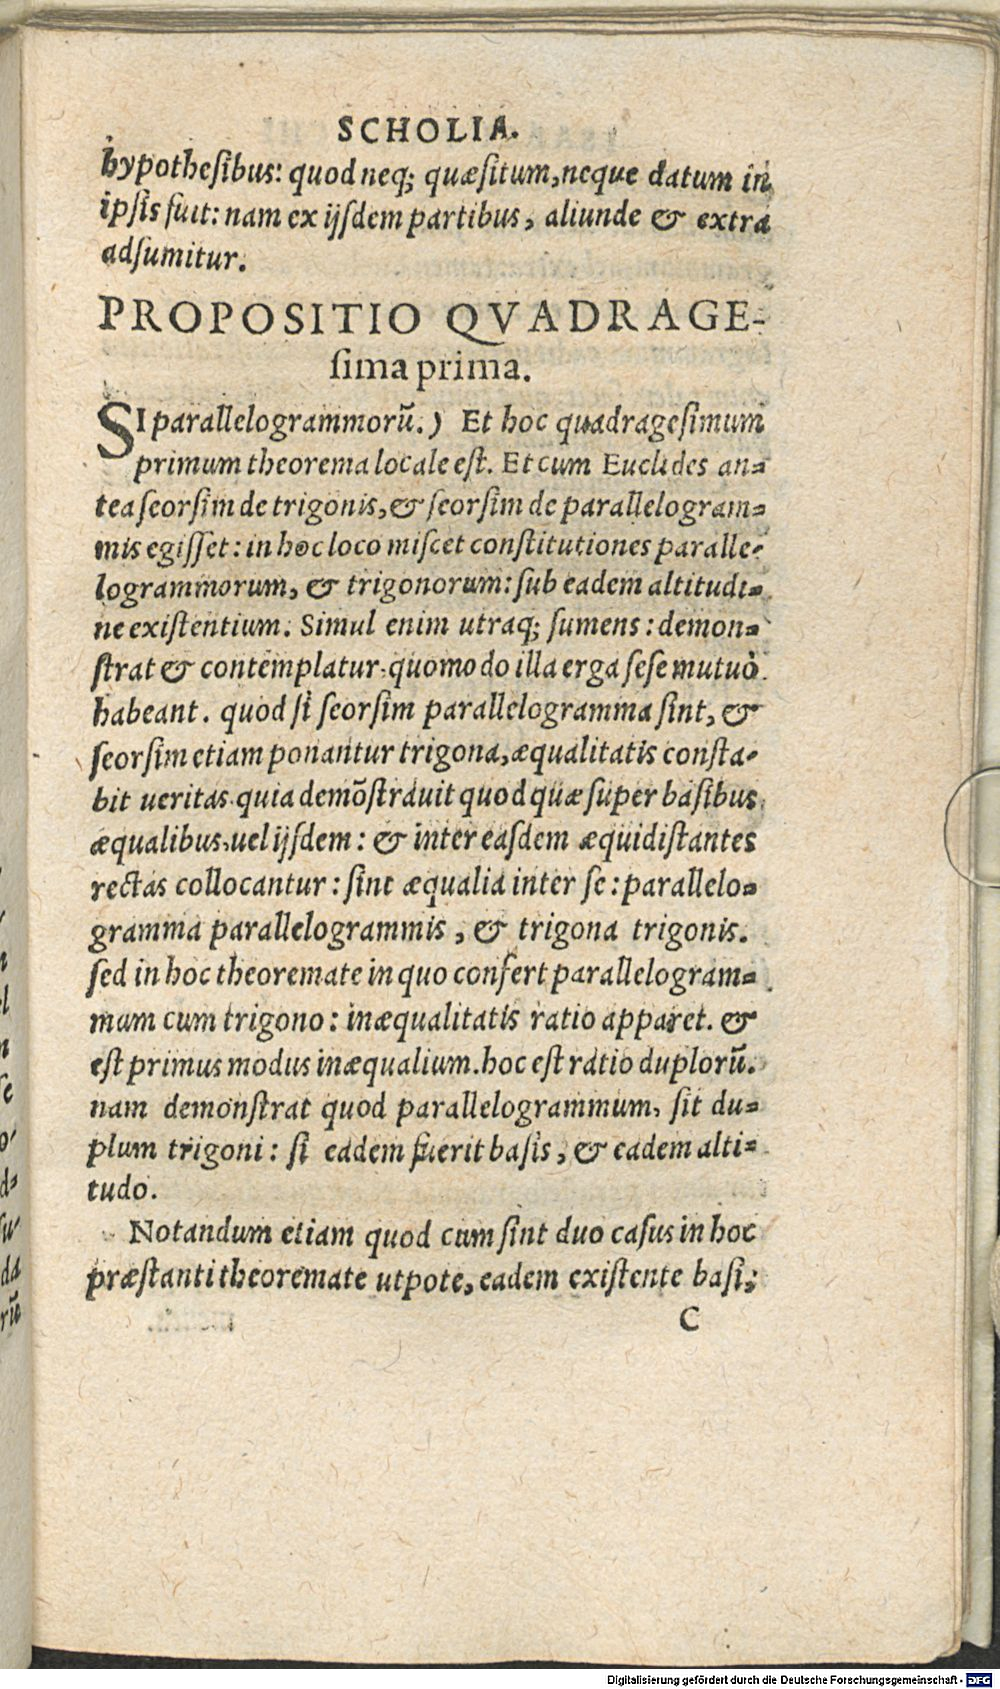 SCHOLIA.
hypotheſibus: quod neq; quæſitum, neque datum in
ipſis fuit: nam ex ijſdem partibus, aliunde & extra
adſumitur.
PROPOSITIO QVADRAGE-
ſima prima.
SI parallelogrammorũ.) Et hoc quadrageſimum
primum theorema locale eſt. Et cum Euclides an=
tea ſeorſim de trigonis, & ſeorſim de parallelogram=
mis egiſſet: in hoc loco miſcet conſtitutiones paralle-
logrammorum, & trigonorum: ſub eadem altitudi=
ne exiſtentium. Simul enim utraq; ſumens: demon=
ſtrat & contemplatur. quomodo illa erga ſeſe mutuò
habeant. quod ſi ſeorſim parallelogramma ſint, &
ſeorſim etiam ponantur trigona, æqualitatis conſta-
bit ueritas. quia demõſtrauit quod quæ ſuper baſibus
æqualibus, uel ijſdem: & inter eaſdem æquidiſtantes
rectas collocantur: ſint æqualia inter ſe: parallelo=
gramma parallelogrammis, & trigona trigonis.
ſed in hoc theoremate in quo confert parallelogram=
mum cum trigono: inæqualitatis ratio apparet. &
eſt primus modus inæqualium. hoc eſt ratio duplorũ.
nam demonſtrat quod parallelogrammum, ſit du=
plum trigoni: ſi eadem fuerit baſis, & eadem alti=
tudo.
Notandum etiam quod cum ſint duo caſus in hoc
præſtanti theoremate utpote, eadem exiſtente baſi;
C
Digitalisierung gefördert durch die Deutsche Forschungsgemeinschaft - DFG